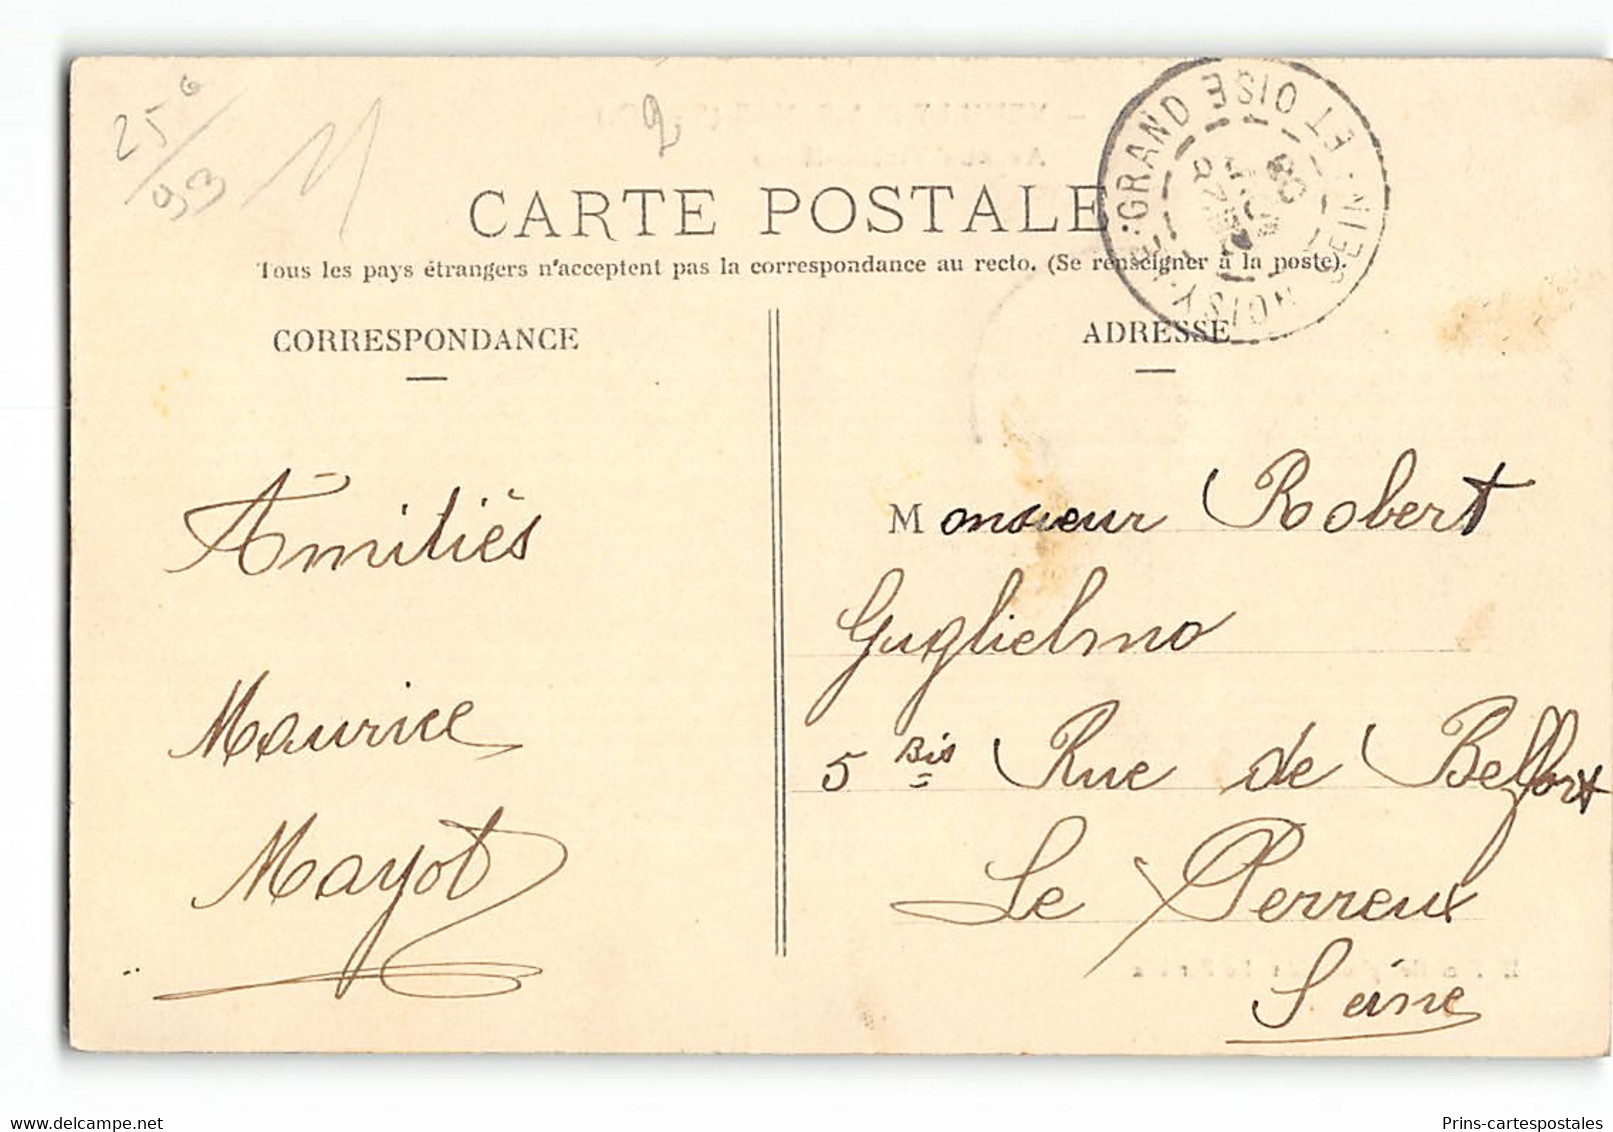 25⁰
93
2
CARTE POSTALE
Tous les pays étrangers n'acceptent pas la correspondance au recto. (Se renseigner à la poste).
NOISY-LE-GRAND
SEINE ET OISE
CORRESPONDANCE
ADRESSE
Amitiés
Maurice
Mayot
Monsieur Robert
Guglielmo
5 Bis Rue de Belfort
Le Perreux
Seine
www.delcampe.net
Prins-cartespostales